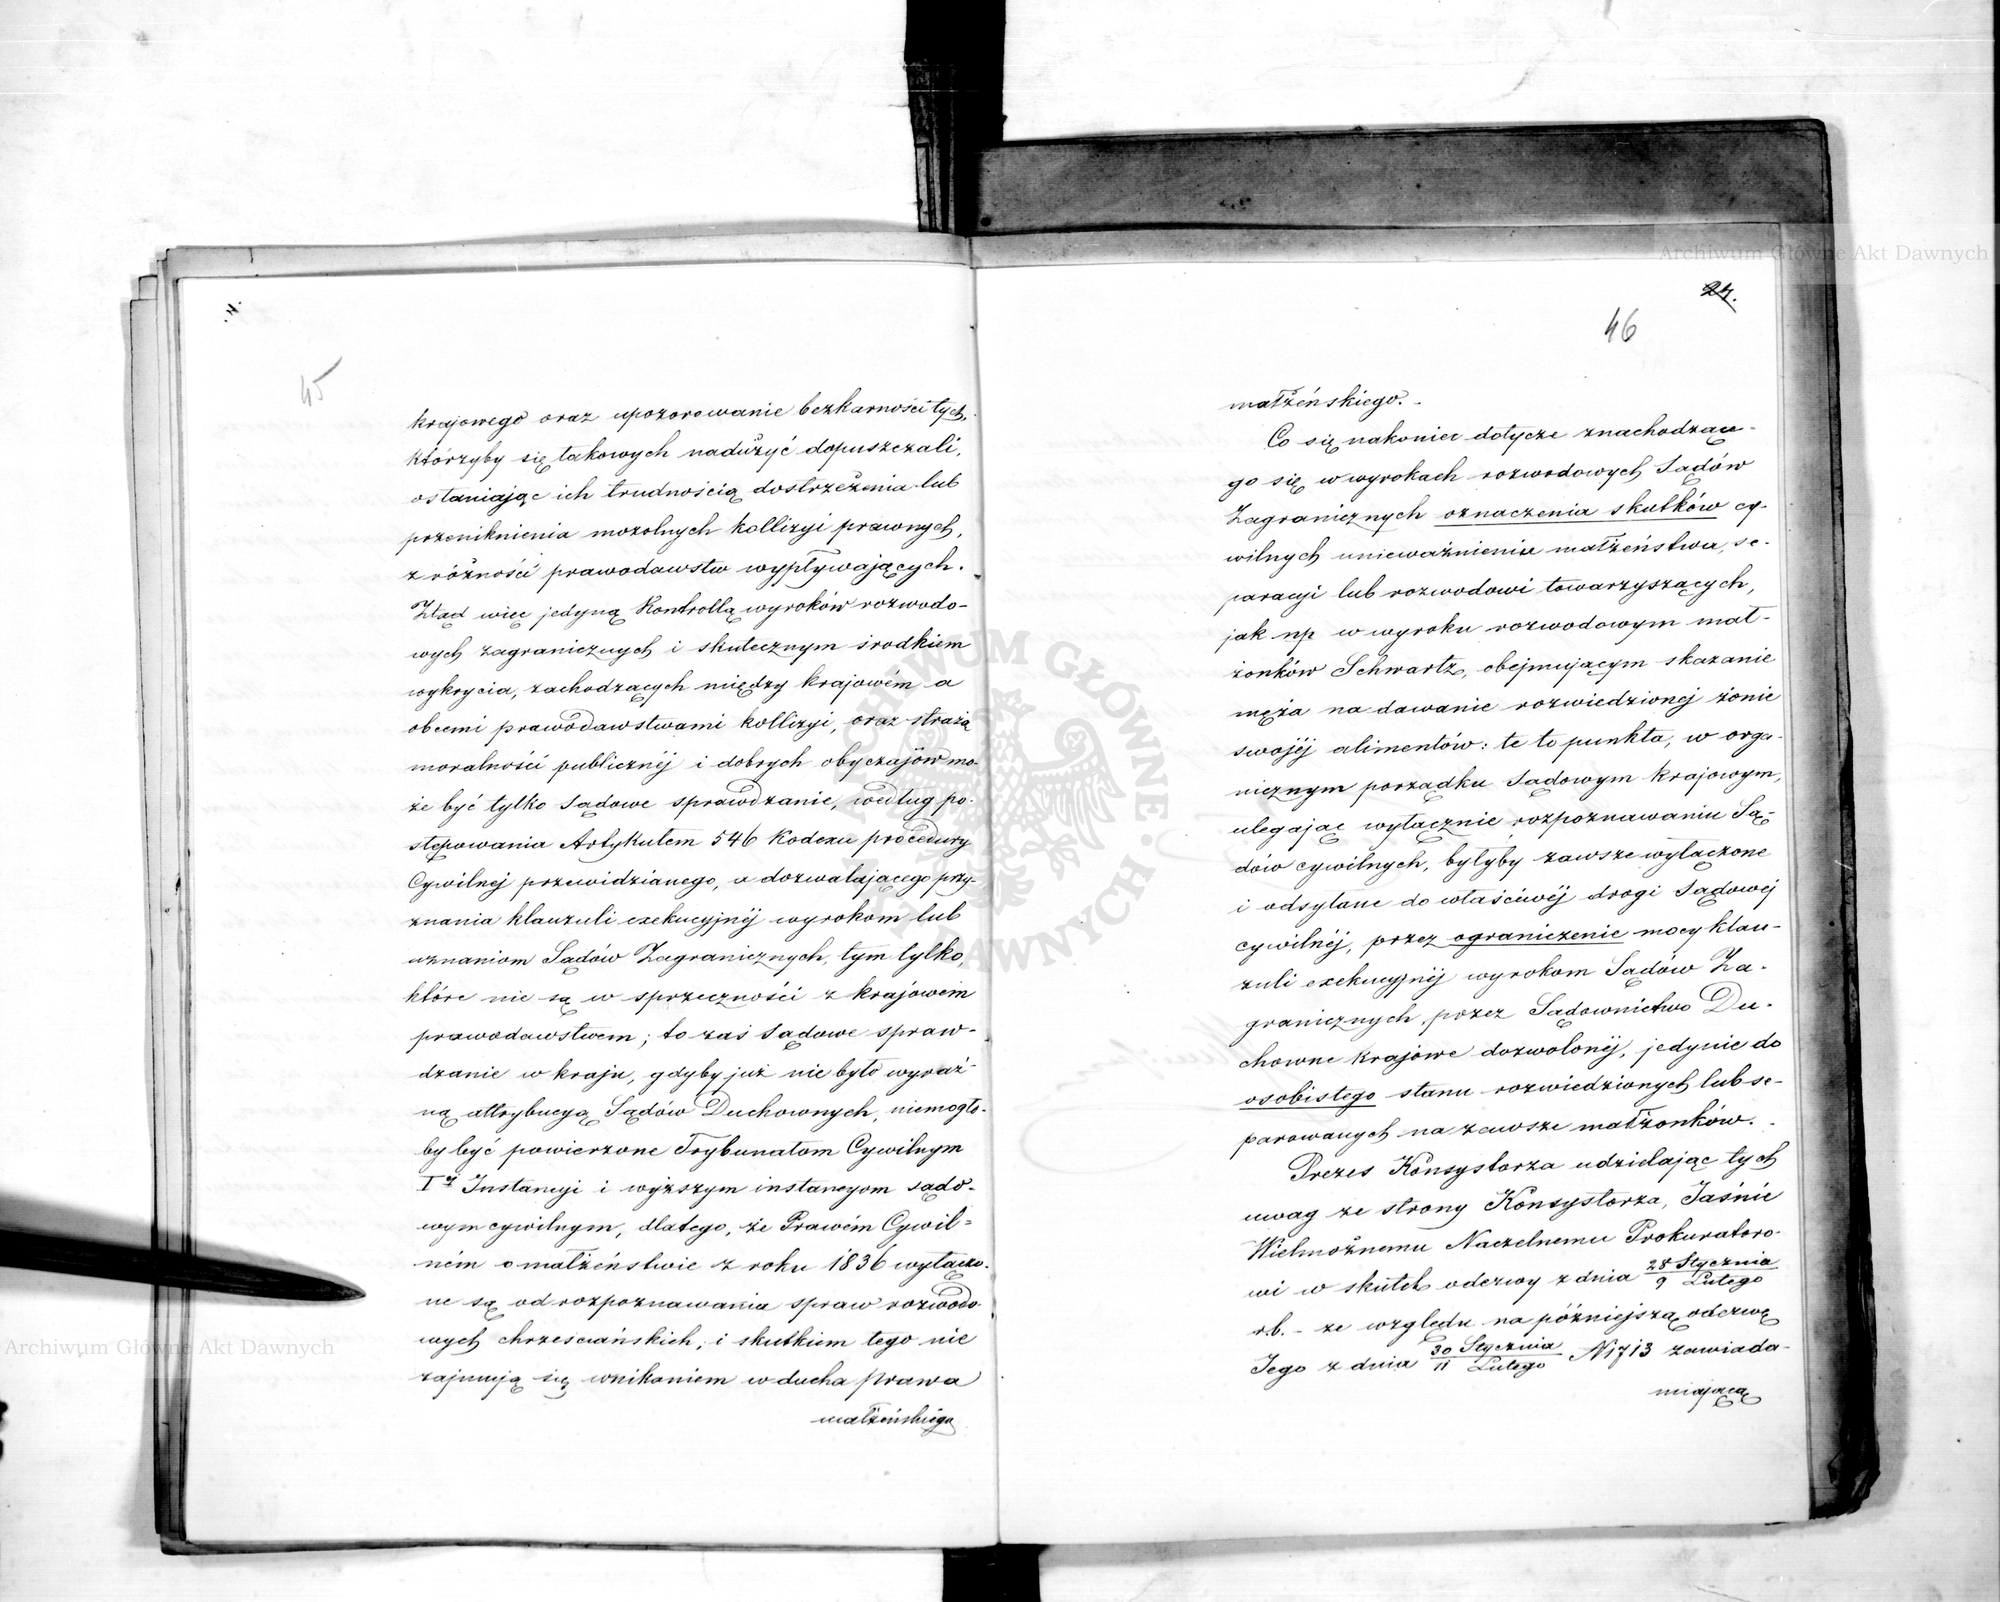 45
krajowego oraz upozorowanie bezkarności tych,
którzyby się takowych nadużyć dopuszczali,
osłaniając ich trudnością dostrzeżenia lub
przeniknienia mozolnych kollizyi prawnych,
z różności prawodawstw wypływających.
Ztąd więc jedyną Kontrollą wyroków rozwodo-
wych zagranicznych i skutecznym środkiem
wykrycia, zachodzących między krajowém a
obcemi prawodawstwami kollizyi, oraz strażą
moralności publicznéj i dobrych obyczajów mo-
że być tylko Sądowe sprawdzanie, według po-
stępowania Artykułem 546 Kodexu procedury
Cywilnej przewidzianego, a dozwalającego przy-
znania klauzuli exekucyjnéj wyrokom lub
uznaniom Sądów Zagranicznych, tym tylko,
które nie są w sprzeczności z krajowém
prawodawstwem; to zaś Sądowe spraw-
dzanie w kraju, gdyby już nie było wyraź-
ną attrybucyą Sądów Duchownych, niemogło-
by być powierzone Trybunałom Cywilnym
I éj Instancyi i wyższym instancyom sądo-
wym cywilnym, dlatego, że Prawém Cywil=
ném o małżeństwie z roku 1836 wyłączo-
ne są od rozpoznawania spraw rozwodo-
wych chrześciańskich, i skutkiem tego nie
zajmują się wnikaniem w ducha prawa
małżeńskiego
24.
46
małżeńskiego.-
Co się nakoniec dotycze znachodzące-
go się w wyrokach rozwodowych Sądów
Zagranicznych oznaczenia skutków cy-
wilnych unieważnieniu małżeństwa, se-
paracyi lub rozwodowi towarzyszących,
jak np w wyroku rozwodowym mał-
żonków Schwartz, obejmującym skazanie
męża na dawanie rozwiedzionej żonie
swojéj alimentów: te to punkta, w orga-
nicznym porządku Sądowym krajowym,
ulegając wyłącznie rozpoznawaniu Są-
dów cywilnych, byłyby zawsze wyłączone
i odsyłane do właściwéj drogi Sądowej
cywilnéj, przez ograniczenie mocy klau-
zuli exekucyjnéj wyrokom Sądów Za-
granicznych, przez Sądownictwo Du-
chowne krajowe dozwolonéj, jedynie do
osobistego stanu rozwiedzionych lub se-
parowanych na zawsze małżonków.-
Prezes Konsystorza udzielając tych
uwag ze strony Konsystorza, Jaśnie
Wielmożnemu Naczelnemu Prokuratoro-
wi w skutek odezwy z dnia 28 Stycznia / 9 Lutego
rb.- ze względu na późniejszą odezwę
Jego z dnia 30 Stycznia / 11 Lutego N 1713 zawiada-
miającą
Archiwum Główne Akt Dawnych
Archiwum Główne Akt Dawnych
ARCHIWUM GŁÓWNE AKT DAWNYCH